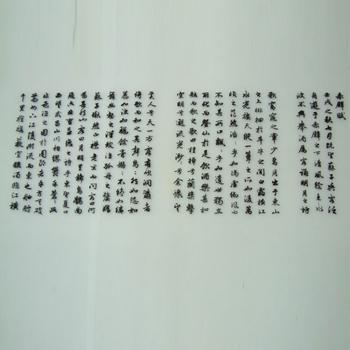 赤壁賦
壬戌之秋七月既望蘇子與客泛
舟遊于赤壁之下清風徐來水
波不興舉酒屬客誦明月之詩
歌窈窕之章少焉月出于東山
之上徘徊於斗牛之間白露橫江
水光接天縱一葦之所如凌萬
頃之茫然浩浩乎如馮虛御風而
不知其所止飄飄乎如遺世獨立
羽化而登仙於是飲酒樂甚扣
舷而歌之歌曰桂棹兮蘭槳擊
空明兮溯流光渺渺兮余懷望
美人兮天一方客有吹洞簫者
倚歌而和之其聲嗚嗚然如怨如
慕如泣如訴餘音嫋嫋不絕如縷
舞幽壑之潛蛟泣孤舟之嫠婦
蘇子愀然正襟危坐而問客曰何
為其然也客曰月明星稀烏鵲南
飛此非曹孟德之詩乎西望夏口
東望武昌山川相繆鬱乎蒼蒼
此非孟德之困於周郎者乎方其破
荊州下江陵順流而東也舳艫
千里旌旗蔽空釃酒臨江橫